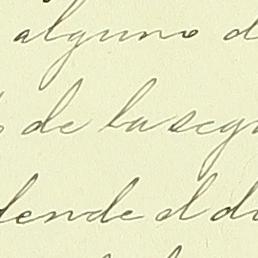 alguno d
de la segu
dende el di